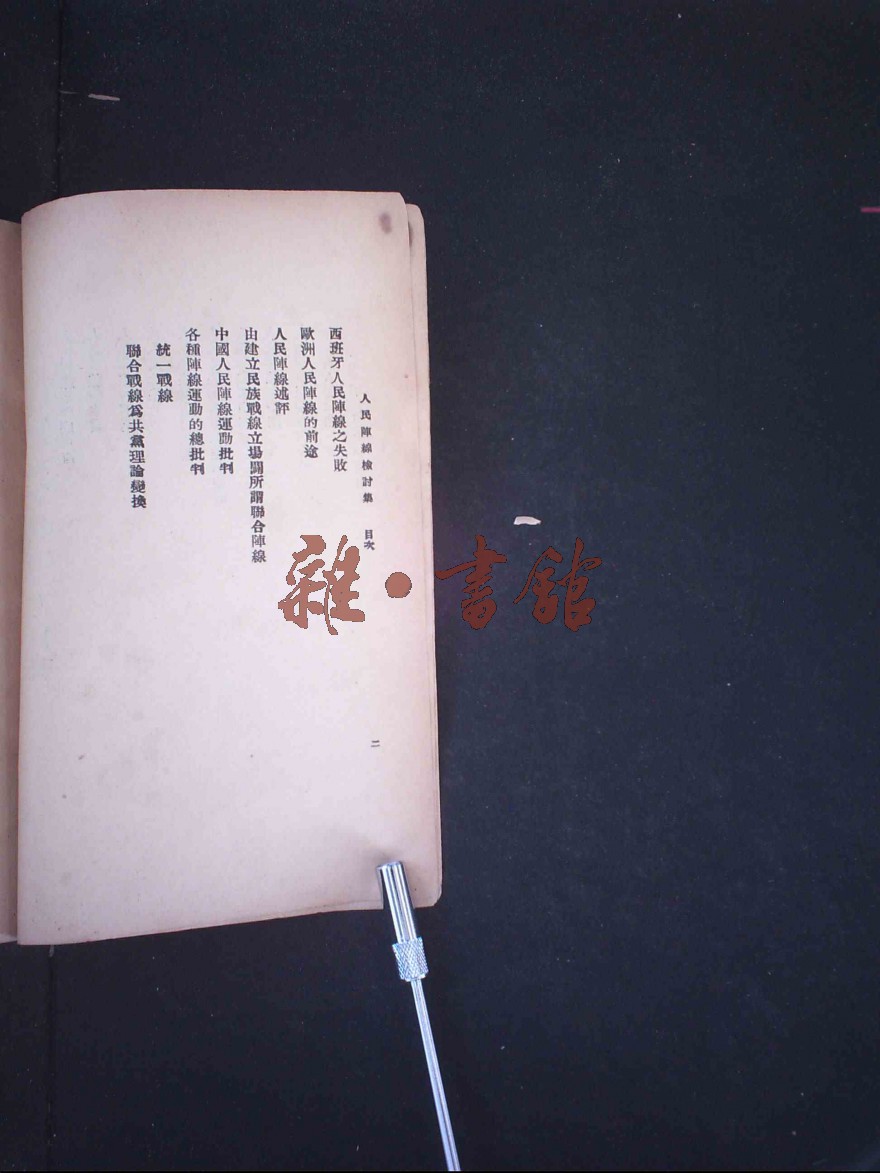 人民陣線檢討集 目次
二
西班牙人民陣線之失敗
歐洲人民陣線的前途
人民陣線述評
由建立民族戰線立場闢所謂聯合陣線
中國人民陣線運動批判
各種陣線運動的總批判
統一戰線
聯合戰線為共黨理論變換
雜·書館